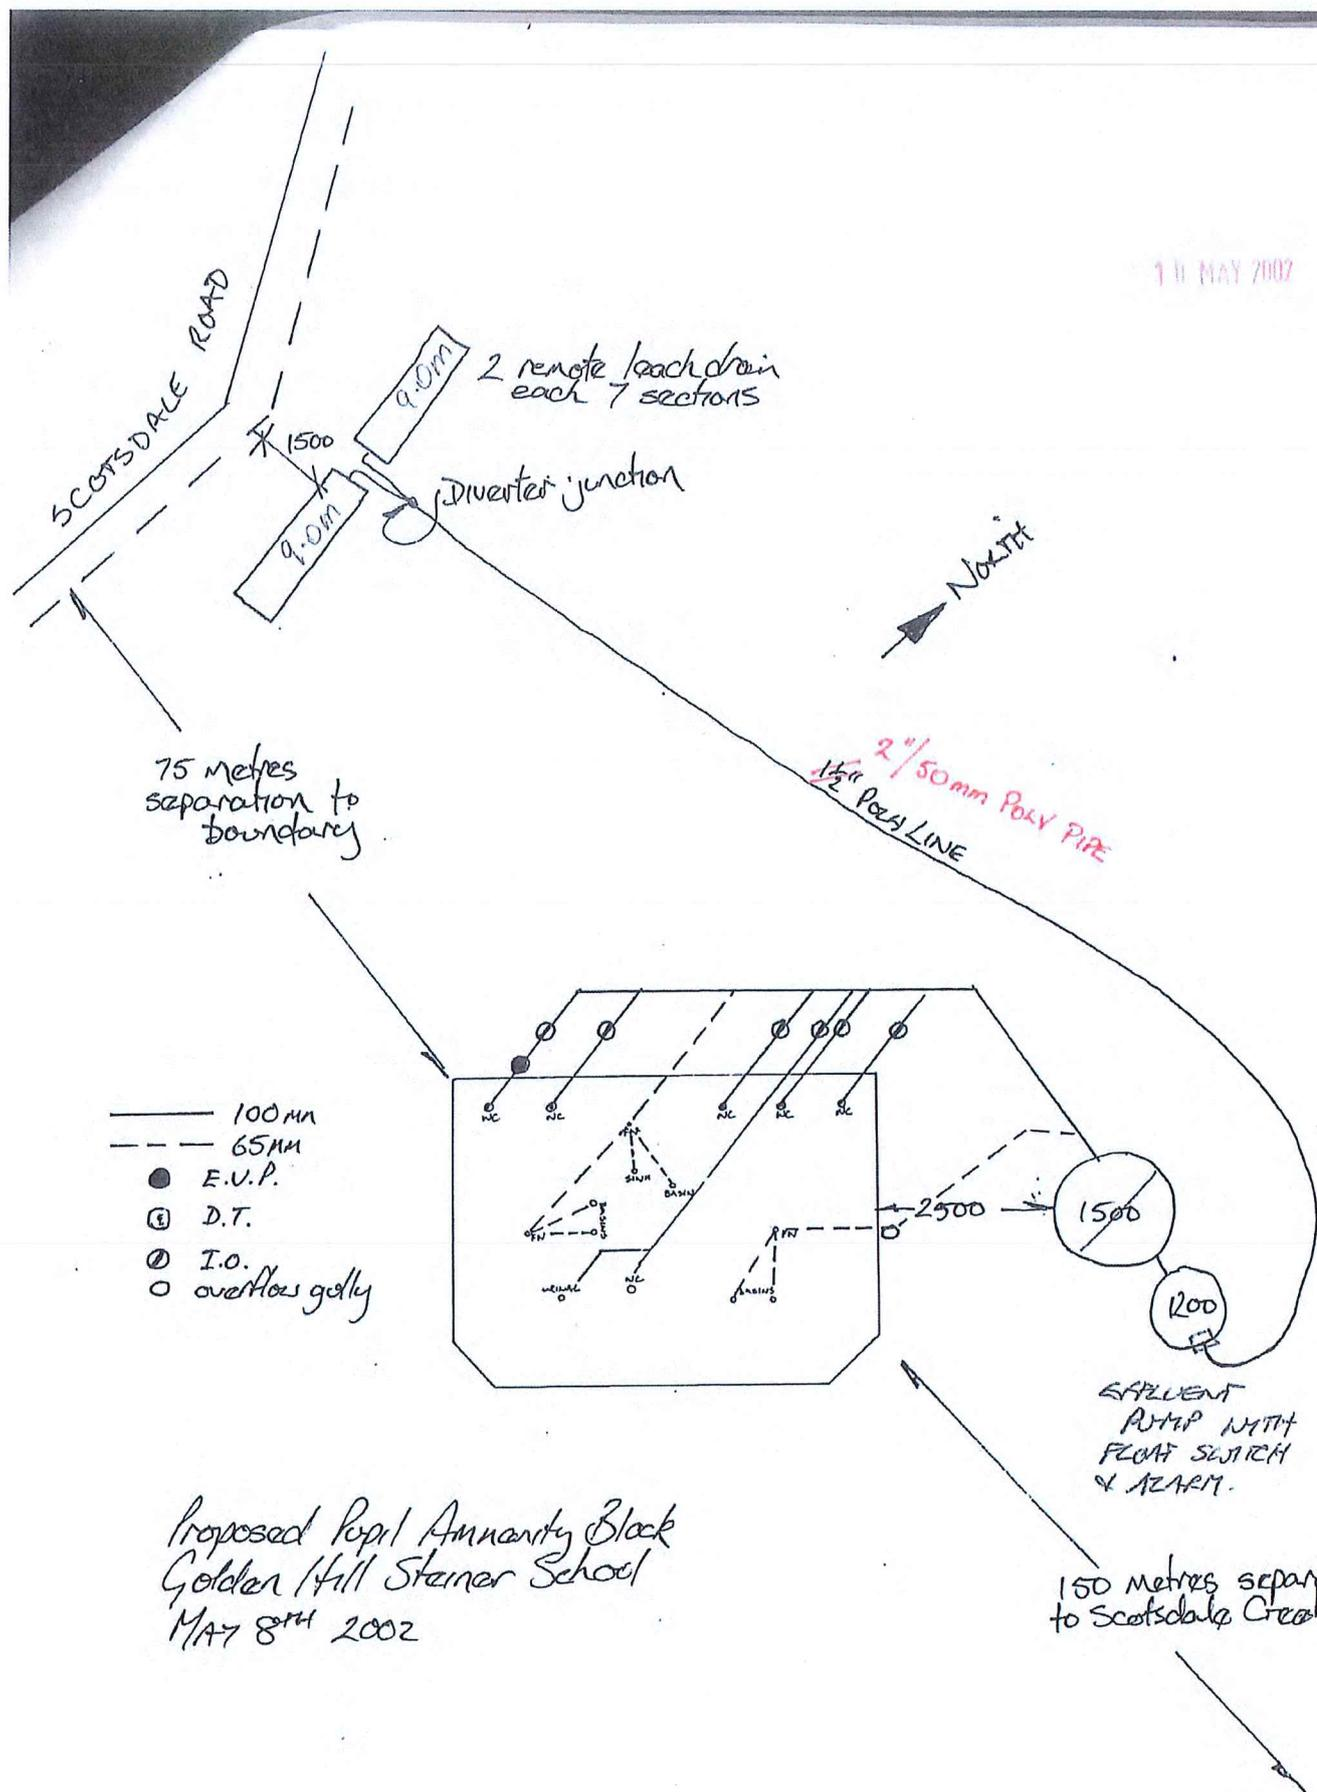 10 MAY 2002
SCOTSDALE ROAD
9.0m
2 remote leach drain
each 7 sections
1500
Diverter junction
9.0m
NORTH
75 Metres
separation to
boundary
2"/50mm POLY PIPE
1½" POLY LINE
100MM
65MM
E.V.P.
D.T.
I.O.
overflow gully
NC
NC
NC
NC
NC
FN
SINK
BASIN
BASINS
FN
FN
2500
1500
URINAL
NC
BASINS
1200
EFFLUENT
PUMP WITH
FLOAT SWITCH
& ALARM.
Proposed Pupil Ammenity Block
Golden Hill Steiner School
MAY 8TH 2002
150 Metres separ
to Scotsdale Creek